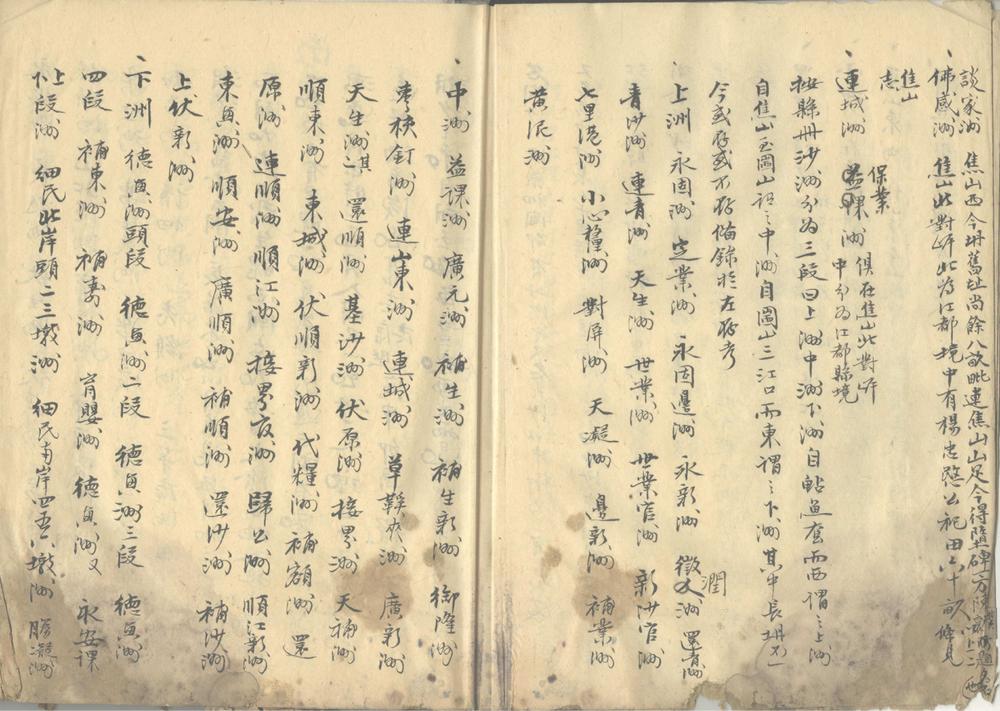 談家洲　焦山西今坍舊址尚餘八畝毗連焦山山足今得墮碑一方
佛感洲　焦山此對岸北為江都境中有楊忠愍公祠田六十畝
焦山志
連城洲　益課洲　俱在焦山北對岸中分為江都縣境
保業
按縣冊沙洲分為三段曰上洲中洲下洲自鮎魚套而西謂之上洲
自焦山至圌山謂之中洲自圌山三江口而東謂之下洲其中長坍不一
今或存或不存備錄於左存考
上洲　永固洲　定業洲　永固邊洲　永新洲　徵人洲　還青洲
潤
青沙洲　連青洲　天生洲　世業洲　世業官洲　新沙官洲
七里港洲　小心糧洲　對屏洲　天凝洲　邊新洲　補業洲
黃泥洲
中洲　益課洲　廣元洲　補生洲　補生新洲　御隆洲
棗核釘洲　連山東洲　連城洲　草鞋夾洲　廣新洲
天生洲其二　還順洲　基沙洲　伏原洲　接界洲　天補洲
順東洲　東城洲　伏順新洲　代糧洲　補額洲　還
原洲　連順洲　順江洲　接界夜洲　歸公洲　順江新洲
東貞洲　順安洲　廣順洲　補順洲　還沙洲　補沙洲
上伏新洲
下洲　德貞洲頭段　德貞洲二段　德貞洲三段　德貞洲
四段　補東洲　補壽洲　育嬰洲　德貞洲又　永安課
上下段洲　細民北岸頭二三墩洲　細民南岸四五六墩洲　勝凝洲